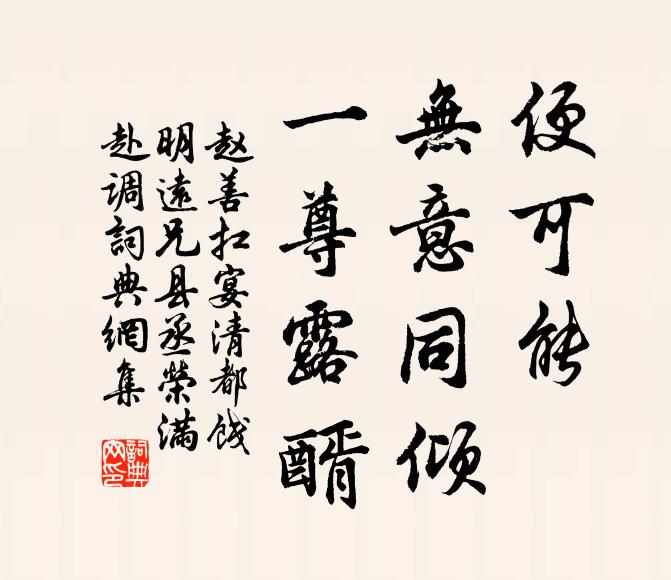 便可能
無意同倾
一尊露醑
赵善扛宴清都饯
明遠兄县丞榮满
赴调詞典網集
詞典
网印